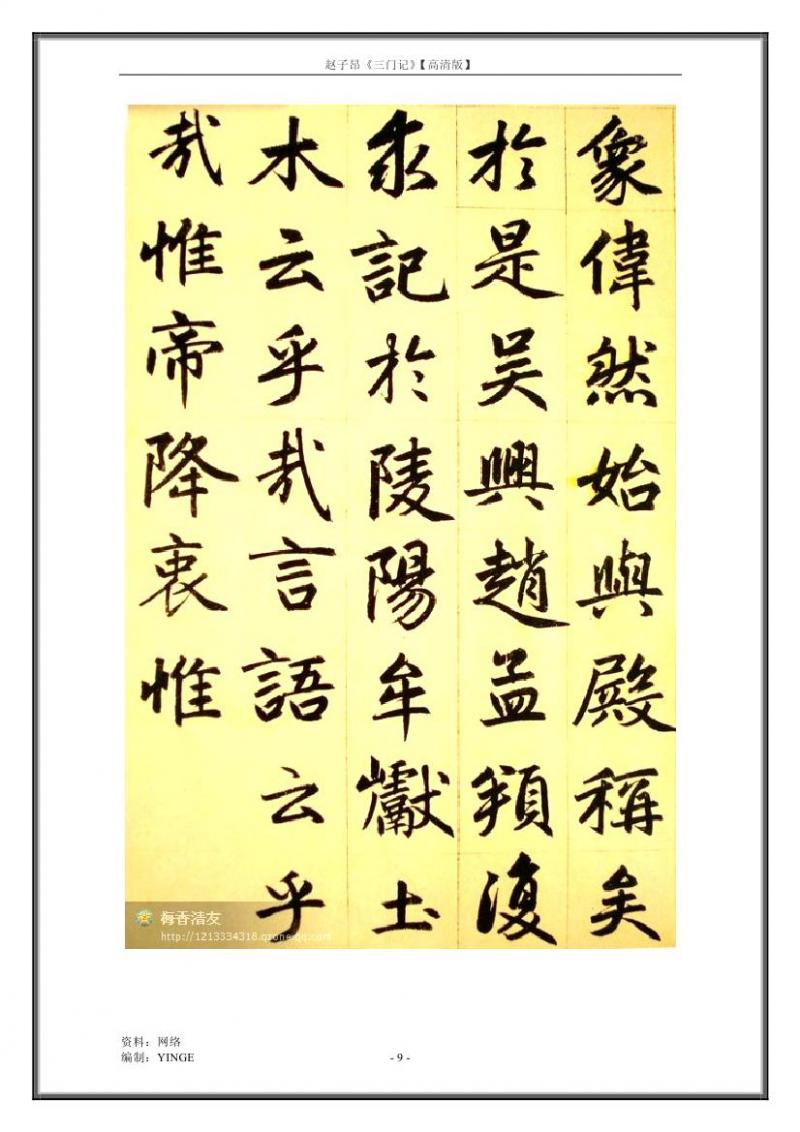 赵子昂《三门记》【高清版】
象偉然始與殿稱矣
於是吴興趙孟頫復
求記於陵陽牟巘土
木云乎哉言語云乎
哉惟帝降衷惟
梅香清友
http://1213334318.qzone.qq.com
资料：网络
编制：YINGE
- 9 -